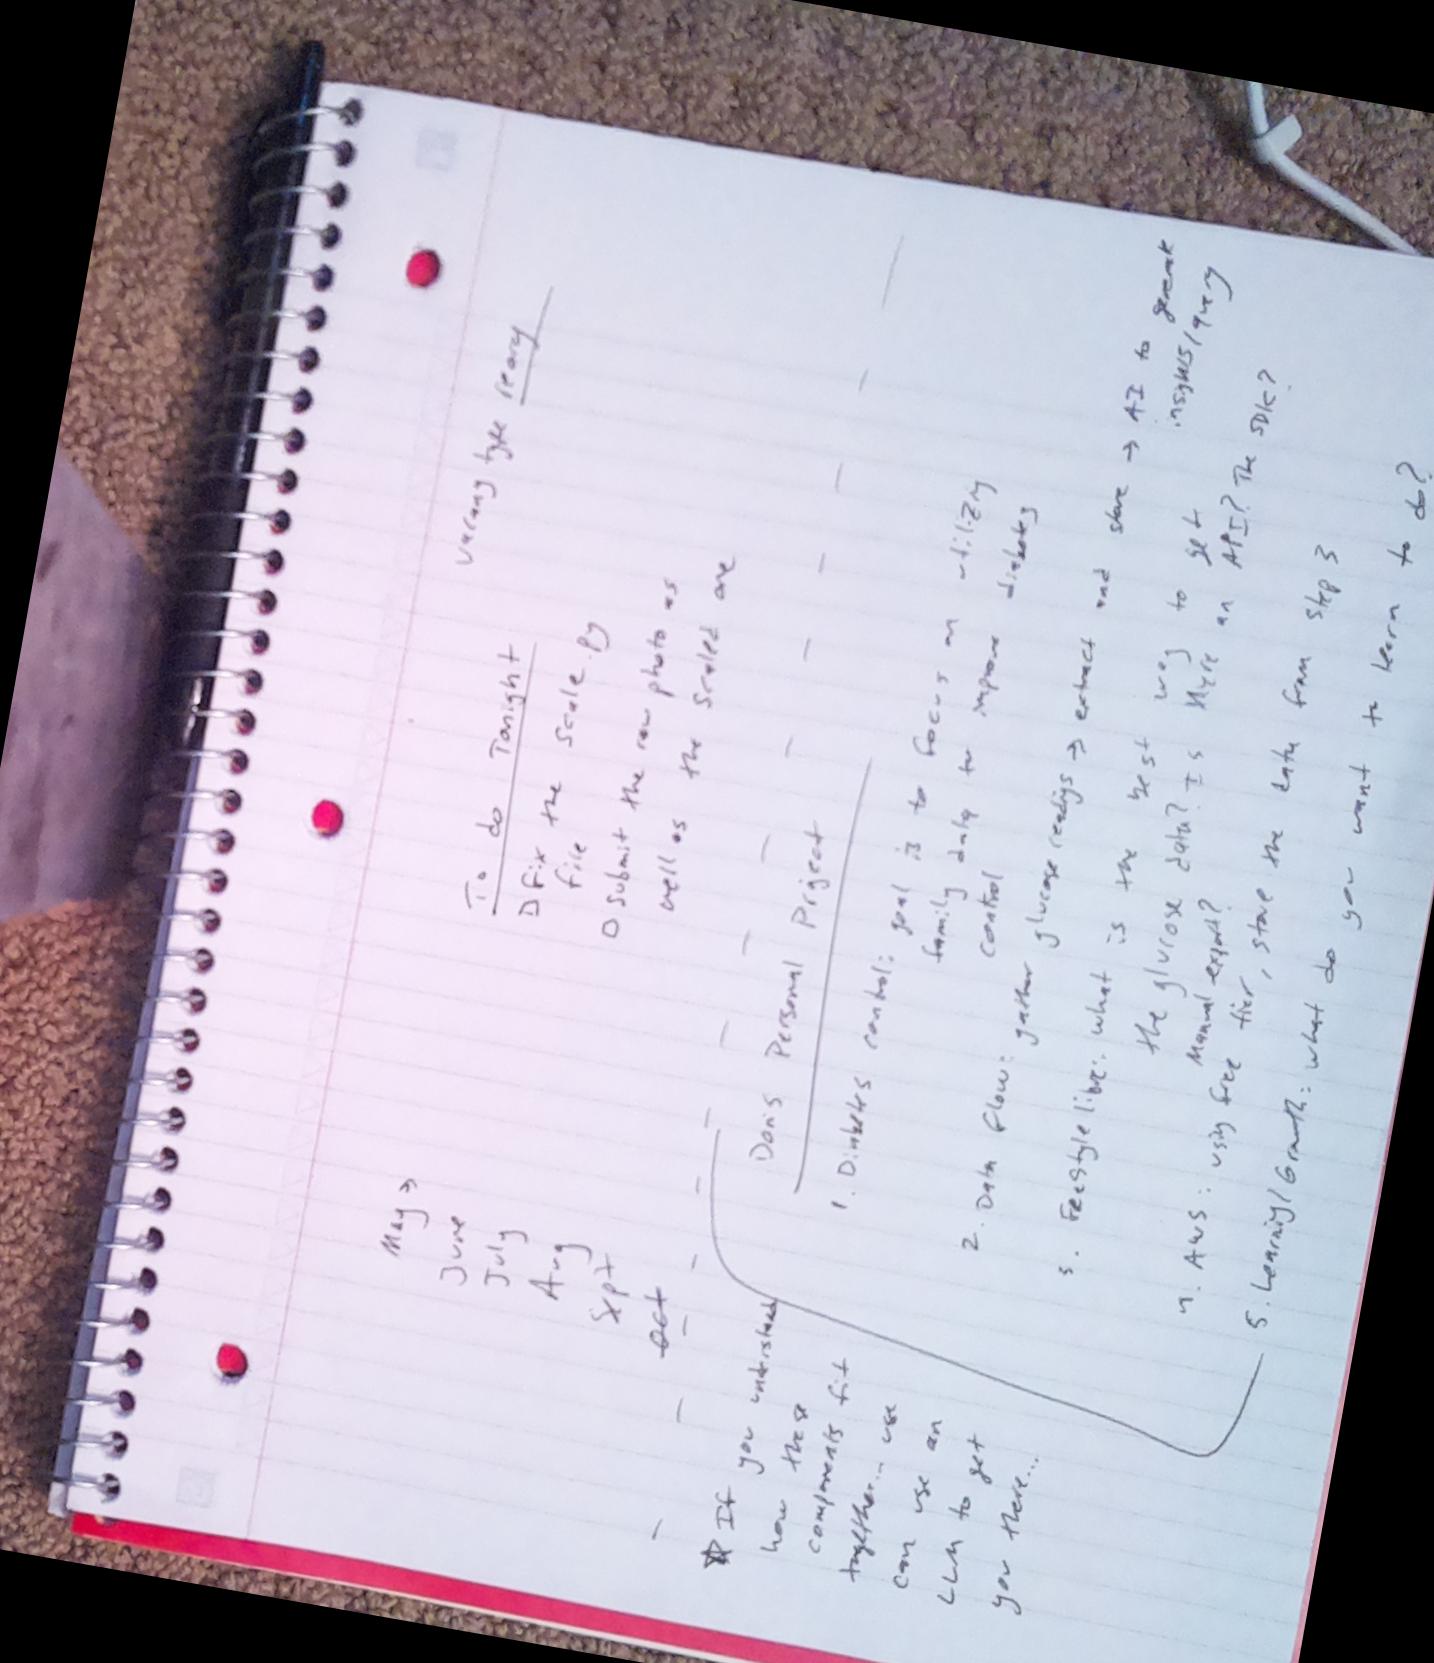 May →
June
July
Aug
Sept
oct
varying type
To do Tonight
Fix the scale.py
file
Submit the raw photo as
well as the scaled one
Dan's Personal Project
1. Diabetes control: goal is to focus on utilizing
family data to improve diabetes
control
2. Data Flow: gather glucose readings → extract and store → AI to generate
insights/query
3. FreeStyle libre: what is the best way to get
the glucose data? Is there an API? The SDK?
Manual export?
4. AWS: using free tier, store the data from step 3
5. Learning/Growth: what do you want to learn to do?
If you understand
how these
components fit
together... use
can use an
LLM to get
you there...